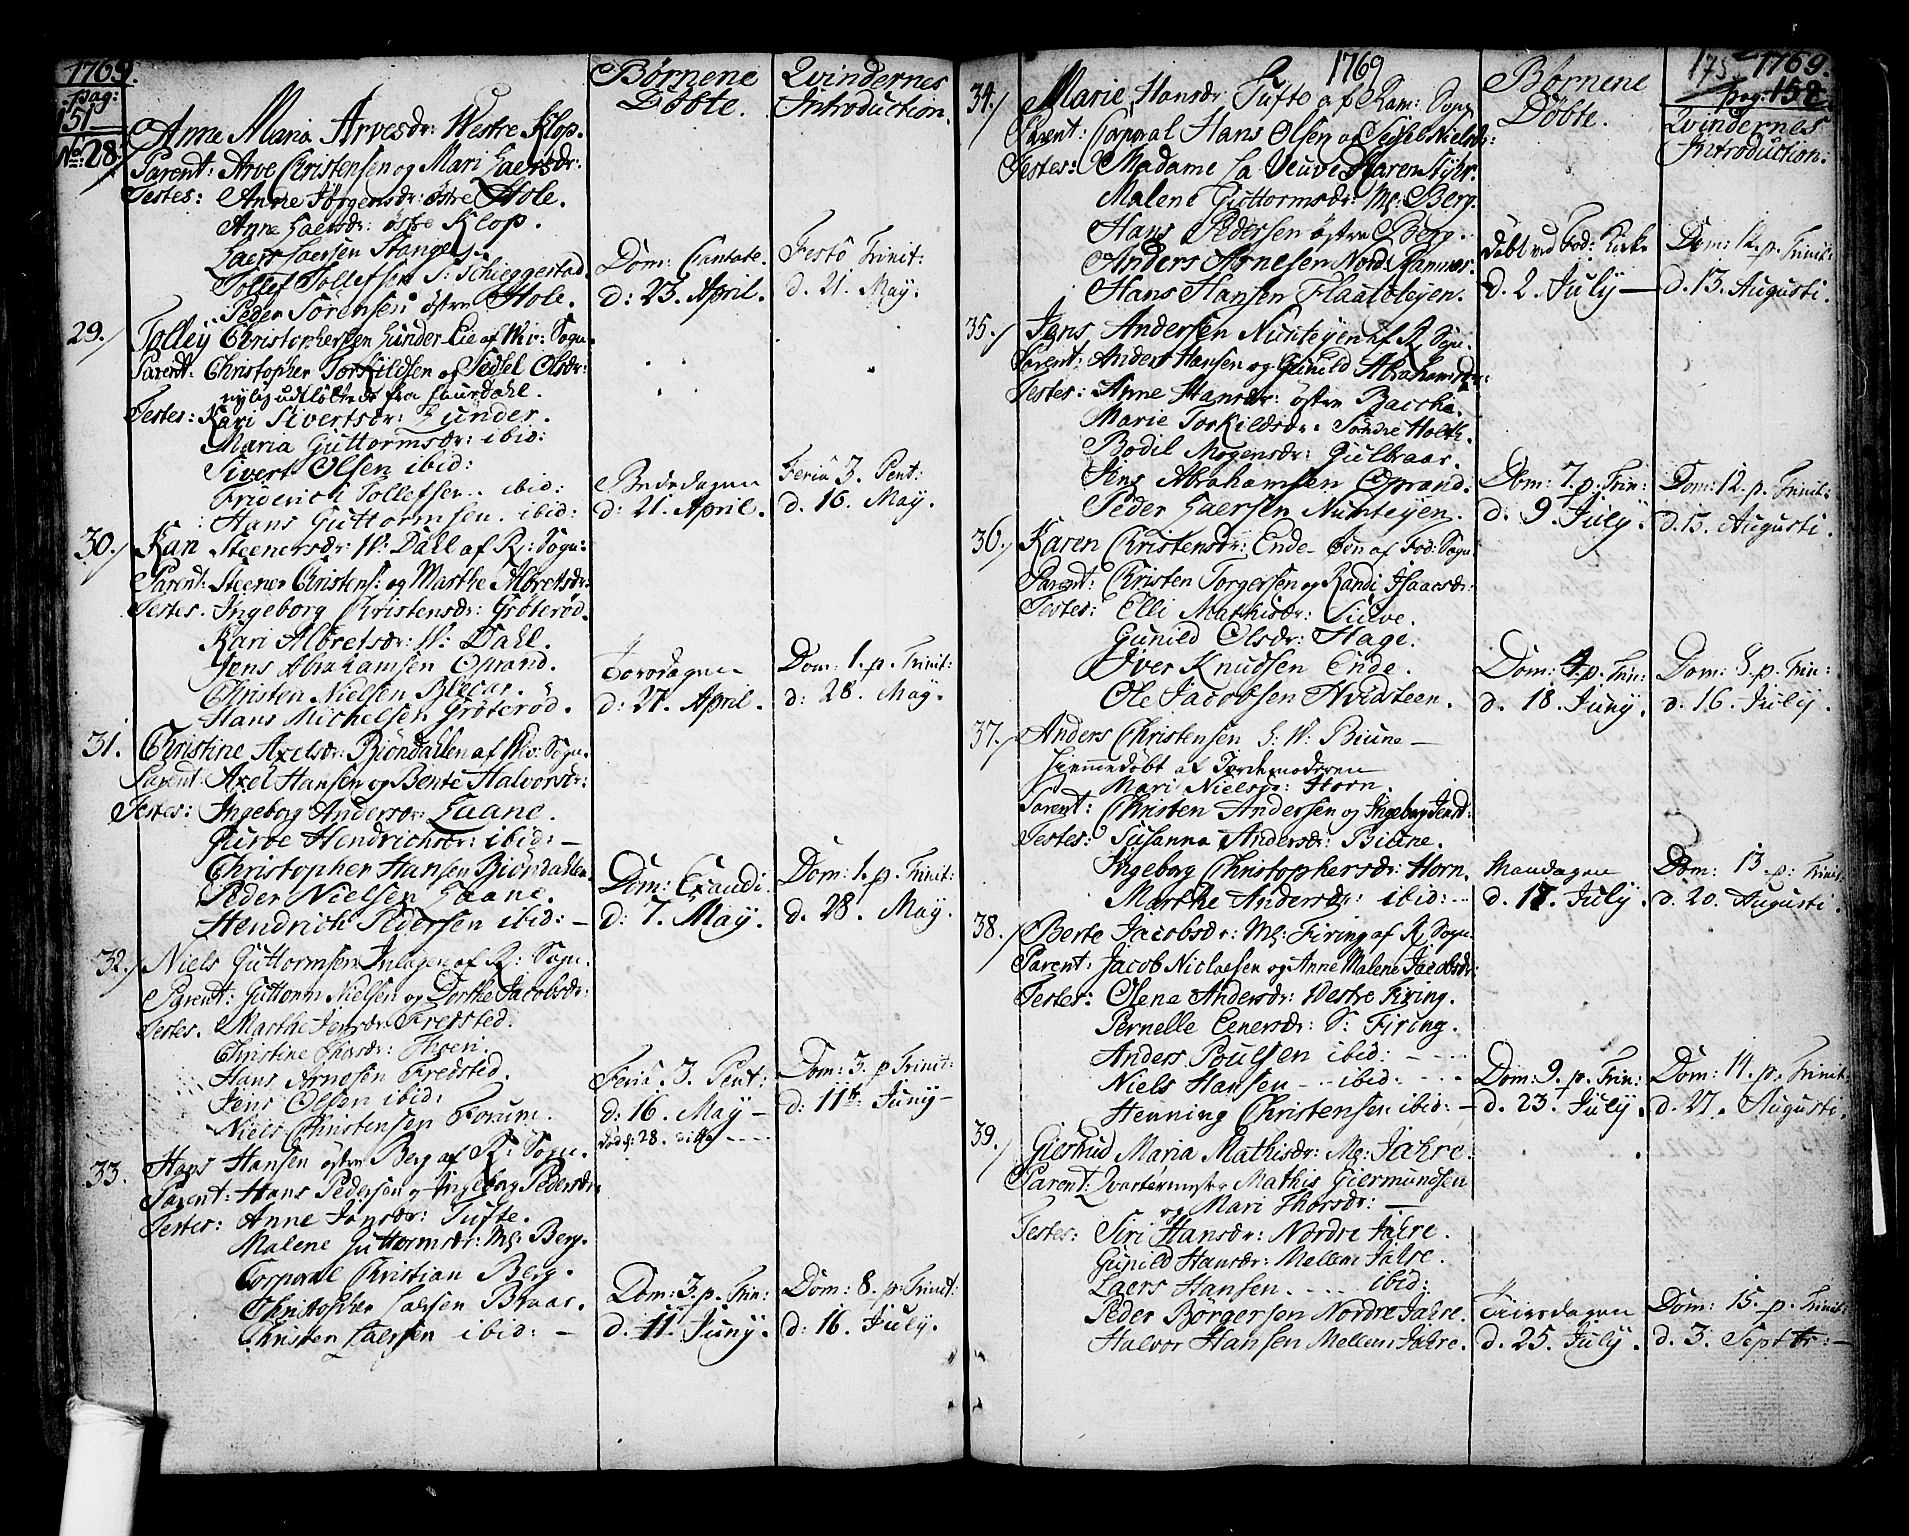 1769.
pag: 151
Børnene Døbte.
Qvindernes Introduction.
No: 28. Anne Maria Arvesdr: Westre Klop.
Parent: Arve Christensen og Mari Laersdr:
Testes: Anne Jørgensdr: østre Hole.
Anne Laersdr: østre Klop.
Laers Laersen Stange
Tollef Tollefsen S: Schieggestad
Peder Sørensen østre Hole.
Dom: Cantate.
d: 23. April.
Festo Trinit:
d. 21. May.
29. Tolley Christophersen Lunder Eie af Sogn.
Parent: Christopher Torkildsen og Sidsel Olsdr:
nylig udfløttede fra
Testes: Kari Sivertsdr: Lunder.
Maria Guttormsdr: ibid:
Sivert Olsen ibid:
Friderich Tollefsen. ibid:
Hans Guttormsen. ibid:
Bededagen
d: 21. April.
Feria 3. Pent:
d: 16. May.
30. Kari Steenersdr: W: Dahl af R: Sogn:
Parent: Steener Christens: og Marthe Albretsdr:
Testes. Ingeborg Christensdr: Grøterød.
Kari Albretsdr: W: Dahl.
Jens Abrahamsen Oprand.
Christen Nielsen
Hans Michelsen Grøterød.
Torsdagen
d: 27. April.
Dom: 1. p. Trinit:
d: 28. May.
31. Christine Axelsdr: Biøndahlen af Sogn.
Parent: Axel Hansen og Bente Halvorsdr:
Testes: Ingeborg Andersdr: Laane.
Gurve Hendrichsdr: ibid: —
Christopher Hansen Biøndahlen.
Peder Nielsen Laane.
Hendrich Pedersen ibid: —
Dom: Exaudi.
d: 7. May.
Dom: 1. p. Trinit:
d. 28. May.
32. Niels Guttormsen af R: Sogn.
Parent: Guttorm Nielsen og Dorthe Jacobsdr:
Testes. Marthe Jensdr: Fredsted.
Christine
Hans Arnesen Fredsted.
Jens Olsen ibid:
Niels Christensen Forum.
Feria. 3. Pent:
d: 16. May —
død d: 28. ditto
Dom: 3. p Trinit:
d: 11te Juny —
33. Hans Hansen østre Berg af R: Sogn.
Parent: Hans Pedersen og Ingeborg Pedersdr:
Testes: Anne Jansdr: Tufte.
Malene Guttormsdr: Ml: Berg.
Corporal Christian Berg.
Christopher Laersen Braar.
Christen Laersen ibid: —
Dom: 3. p. Trin:
d. 11te Juny.
Dom: 8. p. Trinit:
d: 16. July.
1769
175 1769.
pag: 152
Børnene Døbte.
Qvindernes Introduction.
34. Marie Hansdr Tufte af Ram: Sogn
Parent: Corporal Hans Olsen og Nielsdr:
Testes: Madame La Veuve Karen
Malene Guttormsdr: Ml: Berg.
Hans Pedersen østre Berg.
Anders Arnesen Nord:
Hans Hansen
døbt ved Fod: Kirke
d. 2. July —
Dom: 12. p. Trinit:
d. 13. Augusti.
35. Jans Andersen Numteyen af R: Sogn.
Parent: Anders Hansen og Gunild Abrahamsdr:
Testes: Anne Hansdr: østre Bache.
Marie Torkildsdr: Søndre Holth.
Bodil Mogensdr: Gulbraar.
Jens Abrahamsen Oprand.
Peder Laersen Numteyen.
Dom: 7. p. Trin:
d. 9. July.
Dom: 12. p. Trinit:
d. 13. Augusti.
36. Karen Christensdr: Ende af Fod: Sogn
Parent: Christen Torgersen og Randi Isaacsdr:
Testes: Elli Mathisdr:
Gunild Olsdr: Hage.
Iver Knudsen Ende.
Ole Jacobsen Hvidsteen.
Dom: 4. p. Trin:
d. 18. Juny.
Dom: 8. p. Trin:
d. 16. July.
37. Anders Christensen S: W: Biune —
hiemmedøbt af Jordemoderen
Mari Nielsdr: Horn.
Parent: Christen Andersen og Ingeborg Jensdr:
Testes: Susanna Andersdr: Biune.
Ingeborg Christophersdr: Horn.
Marthe Andersdr: ibid:
Mandagen
d. 17. July.
Dom: 13. p: Trinit:
d. 20. Augusti.
38. Berte Jacobsdr: Ml: Firing af R: Sogn
Parent: Jacob Niclaesen og Anne Malene Jacobsdr:
Testes: Olena Andersdr: Westre Firing.
Pernelle Eenersdr: S: Firing.
Anders Poulsen ibid: —
Niels Hansen — ibid:
Henning Christensen ibid: —
Dom: 9. p. Trin:
d. 23. July.
Dom: 14. p. Trinit:
d. 27. Augusti.
39. Giertrud Maria Mathisdr: Ml: Jahre.
Parent: Qvartermester Mathis Giermundsen
og Mari Thorsdr: —
Testes: Siri Hansdr: Nordre Jahre.
Gunild Hansdr: Mellem Jahre.
Laers Hansen. ... ibid:
Peder Børgersen Nordre Jahre.
Halvor Hansen Mellem Jahre.
Tiirsdagen
d. 25. July.
Dom: 15. p. Trinit:
d. 3. Septbr: —